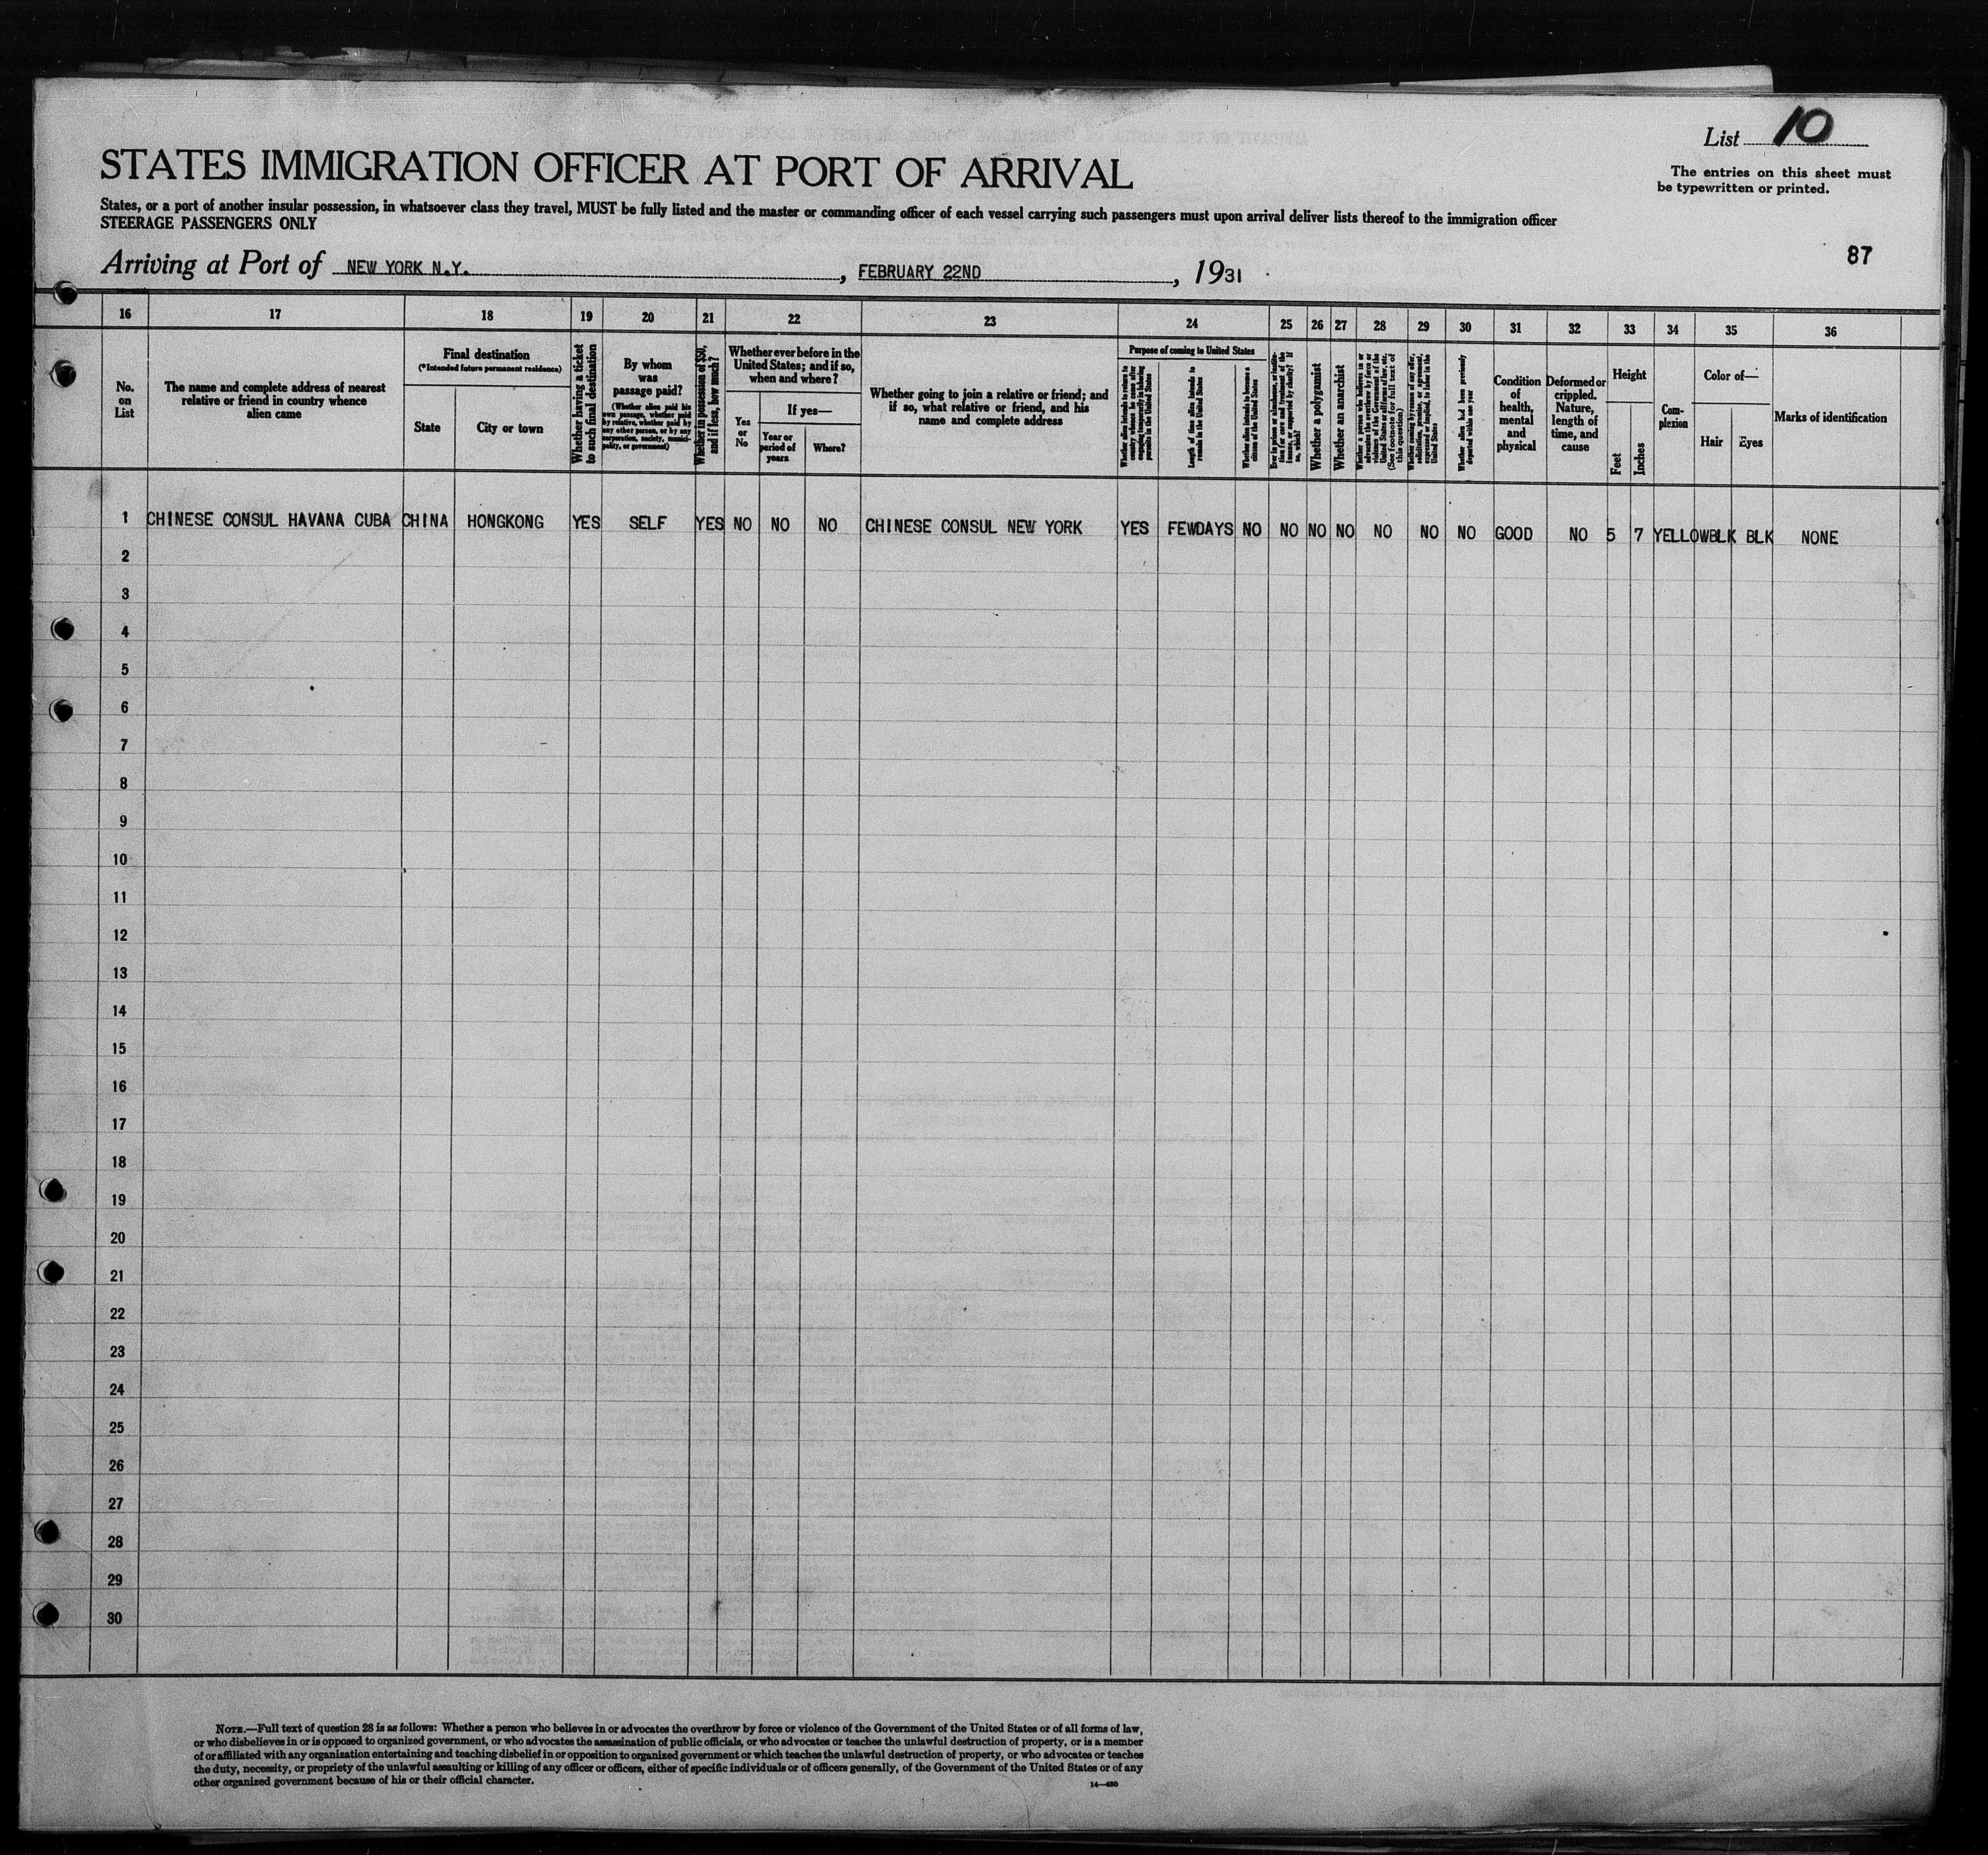 List 10
The entries on this sheet must
be typewritten or printed.
STATES IMMIGRATION OFFICER AT PORT OF ARRIVAL
States, or a port of another insular possession, in whatsoever class they travel, MUST be fully listed and the master or commanding officer of each vessel carrying such passengers must upon arrival deliver lists thereof to the immigration officer
STEERAGE PASSENGERS ONLY
87
Arriving at Port of NEW YORK N.Y., FEBRUARY 22ND, 1931
16 17 18 19 20 21 22 23 24 25 26 27 28 29 30 31 32 33 34 35 36
No.
on
List
The name and complete address of nearest
relative or friend in country whence
alien came
Final destination
(*Intended future permanent residence)
State
City or town
Whether having a ticket
to such final destination
By whom
was
passage paid?
(Whether alien paid his
own passage, whether paid
by relative, whether paid by
any other person, or by any
corporation, society, munici-
pality, or government)
Whether in possession of $50,
and if less, how much?
Whether ever before in the
United States; and if so,
when and where?
Yes
or
No
If yes—
Year or
period of
years
Where?
Whether going to join a relative or friend; and
if so, what relative or friend, and his
name and complete address
Purpose of coming to United States
Whether alien intends to return to
country whence he came after
engaging temporarily in laboring
pursuits in the United States
Length of time alien intends to
remain in the United States
Whether alien intends to become a
citizen of the United States
Ever in prison or almshouse, or institu-
tion for care and treatment of the
insane, or supported by charity? If
so, which?
Whether a polygamist
Whether an anarchist
Whether a person who believes in or
advocates the overthrow by force or
violence of the Government of the
United States or all forms of law, etc.
(See footnote for full text of
this question)
Whether coming by reason of any offer,
solicitation, promise, or agreement,
expressed or implied, to labor in the
United States
Whether alien had been previously
deported within one year
Condition
of
health,
mental
and
physical
Deformed or
crippled.
Nature,
length of
time, and
cause
Height
Feet
Inches
Com-
plexion
Color of—
Hair
Eyes
Marks of identification
1 CHINESE CONSUL HAVANA CUBA CHINA HONGKONG YES SELF YES NO NO NO CHINESE CONSUL NEW YORK YES FEWDAYS NO NO NO NO NO NO NO GOOD NO 5 7 YELLOW BLK BLK NONE
2
3
4
5
6
7
8
9
10
11
12
13
14
15
16
17
18
19
20
21
22
23
24
25
26
27
28
29
30
NOTE.—Full text of question 28 is as follows: Whether a person who believes in or advocates the overthrow by force or violence of the Government of the United States or of all forms of law,
or who disbelieves in or is opposed to organized government, or who advocates the assassination of public officials, or who advocates or teaches the unlawful destruction of property, or is a member
of or affiliated with any organization entertaining and teaching disbelief in or opposition to organized government or which teaches the unlawful destruction of property, or who advocates or teaches
the duty, necessity, or propriety of the unlawful assaulting or killing of any officer or officers, either of specific individuals or of officers generally, of the Government of the United States or of any
other organized government because of his or their official character.
14—430